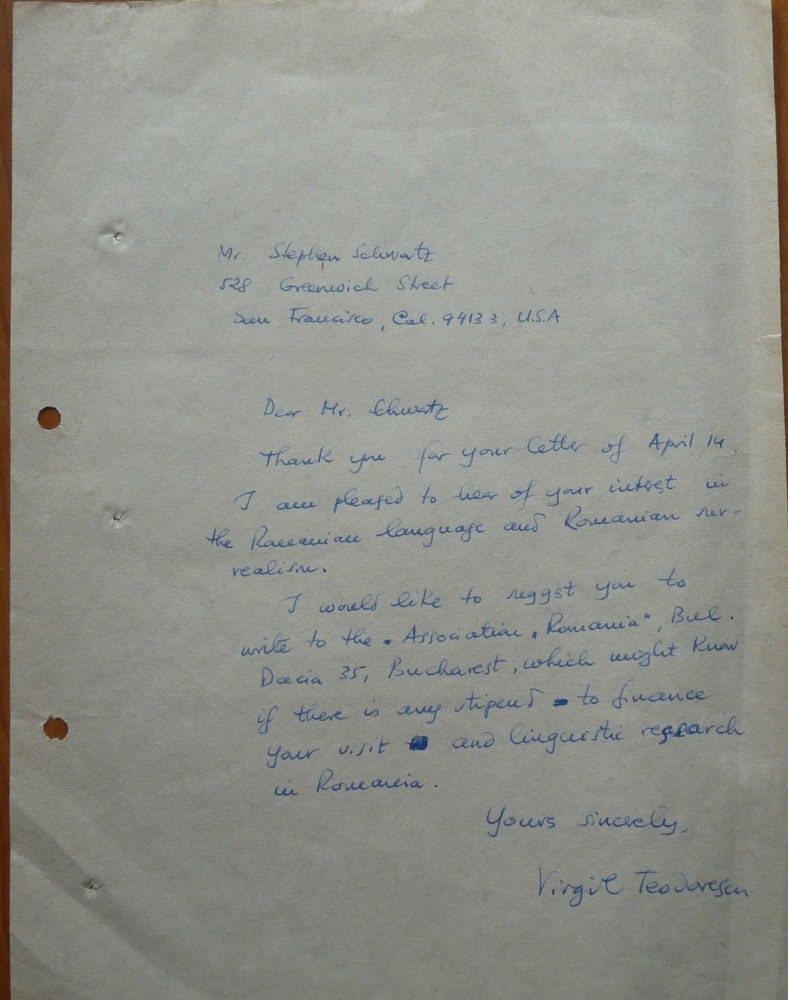 Mr. Stephen Schwartz
528 Greenwich Street
San Francisco, Cal. 94133, U.S.A
Dear Mr. Schwartz
Thank you for your letter of April 14.
I am pleased to hear of your interest in
the Romanian language and Romanian sur-
realism.
I would like to suggst you to
write to the Association „Romania", Bul.
Dacia 35, Bucharest, which might know
if there is any stipend to finance
your visit and linguistic research
in Romania.
Yours sincerely,
Virgil Teodorescu